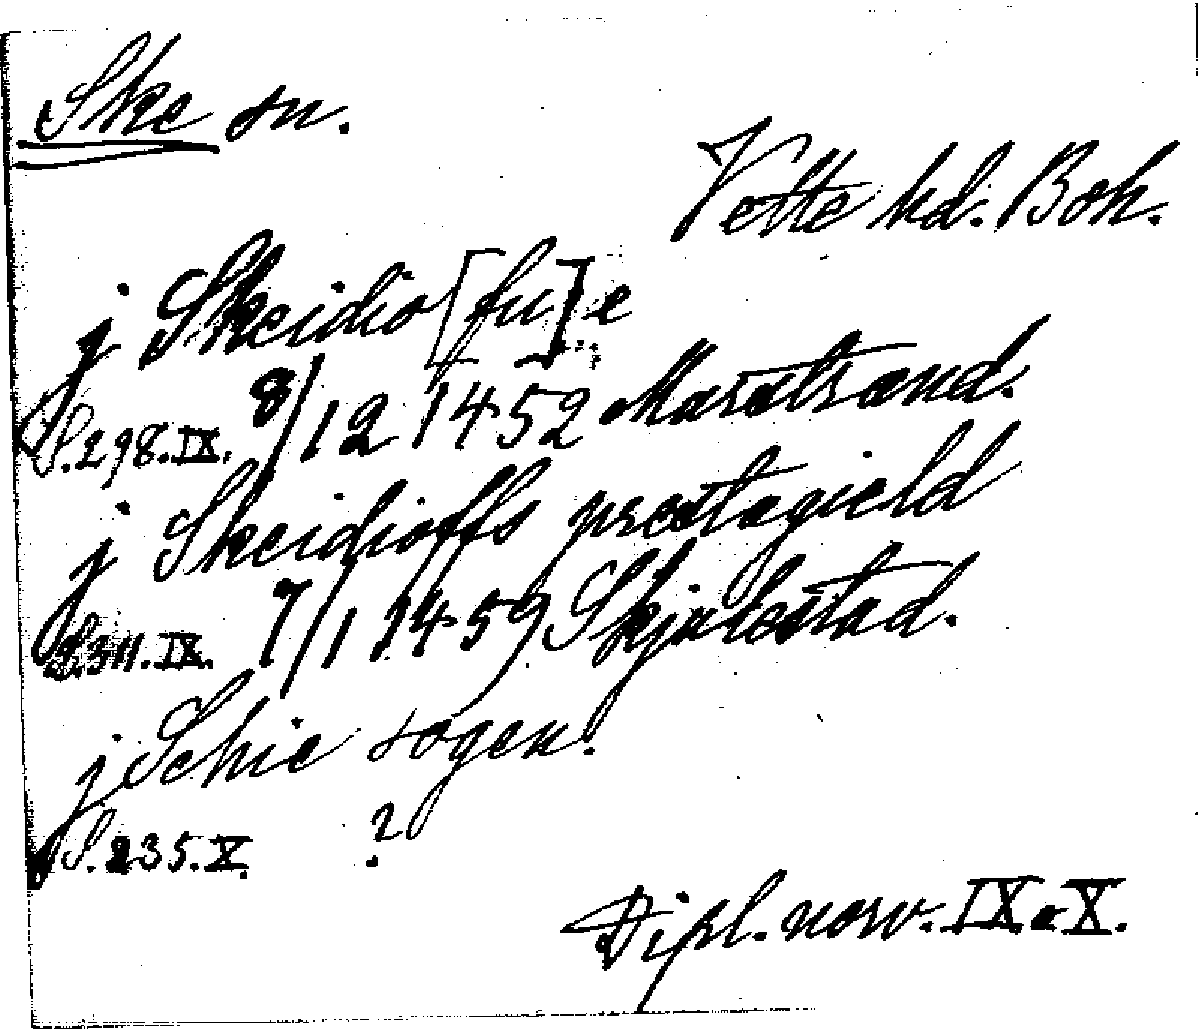 Ske sn.
Vette hd. Boh.
j Skeidio[fu]e
S.298.IX. 8/12 1452 Marstrand.
j Skeidioffs prestagield
S.311.IX. 7/1 1459 Skjalestad.
j Schie sogen.
S.235.X. ?
Dipl. norv. IX a X.